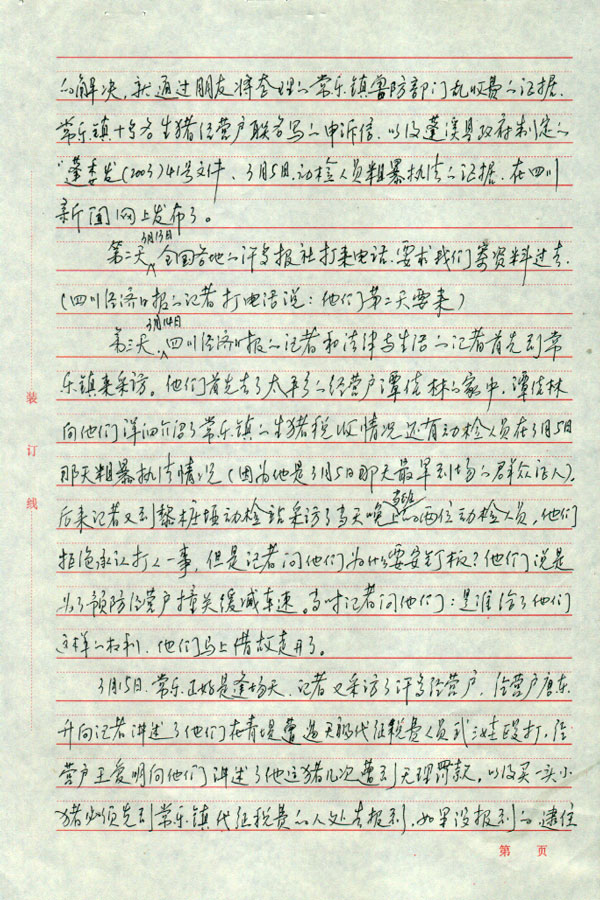 的解决,就通过朋友将整理的常乐镇兽防部门乱收费的证据、
常乐镇十多名生猪经营户联名写的申诉信,以及蓬溪县政府制定的
"蓬委发(2003)41号文件、3月5日动检人员粗暴执法的证据,在四川
新闻网上发布了。
3月13日
第二天全国各地的许多报社打来电话、要求我们寄资料过去.
(四川经济日报的记者打电话说:他们第二天要来)
3月14日
第三天,四川经济日报的记者和法律与生活的记者首先到常
乐镇来采访。他们首先去了太平乡的经营户谭优林的家中,谭优林
向他们详细介绍了常乐镇的生猪税收情况还有动检人员在3月5日
那天粗暴执法情况(因为他是3月5日那天最早到场的群众证人).
后来记者又到黎桩垭动检站采访了当天晚上的两位动检人员,他们
拒绝承认打人一事,但是记者问他们为什么要安钉板?他们说是
为了预防经营户撞关缓减车速。当时记者问他们:是谁给了他们
这样的权利,他们马上借故走开了。
3月15日、常乐正好是逢场天、记者又采访了许多经营户,经营户唐东
升向记者讲述了他们在青堤遭遇天福代征税费人员 殴打,经
营户王爱明向他们讲述了他运猪几次遭到无理罚款,以及买一头小
猪必须先到常乐镇代征税费的人处去报到,如果没报到的,逮住
装
订
线
第 页